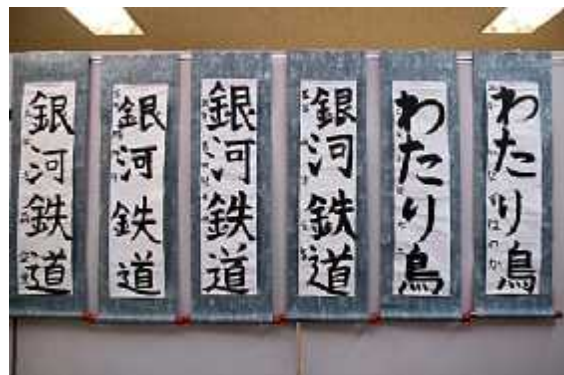 銀河鉄道
銀河鉄道
銀河鉄道
銀河鉄道
わたり鳥
わたり鳥